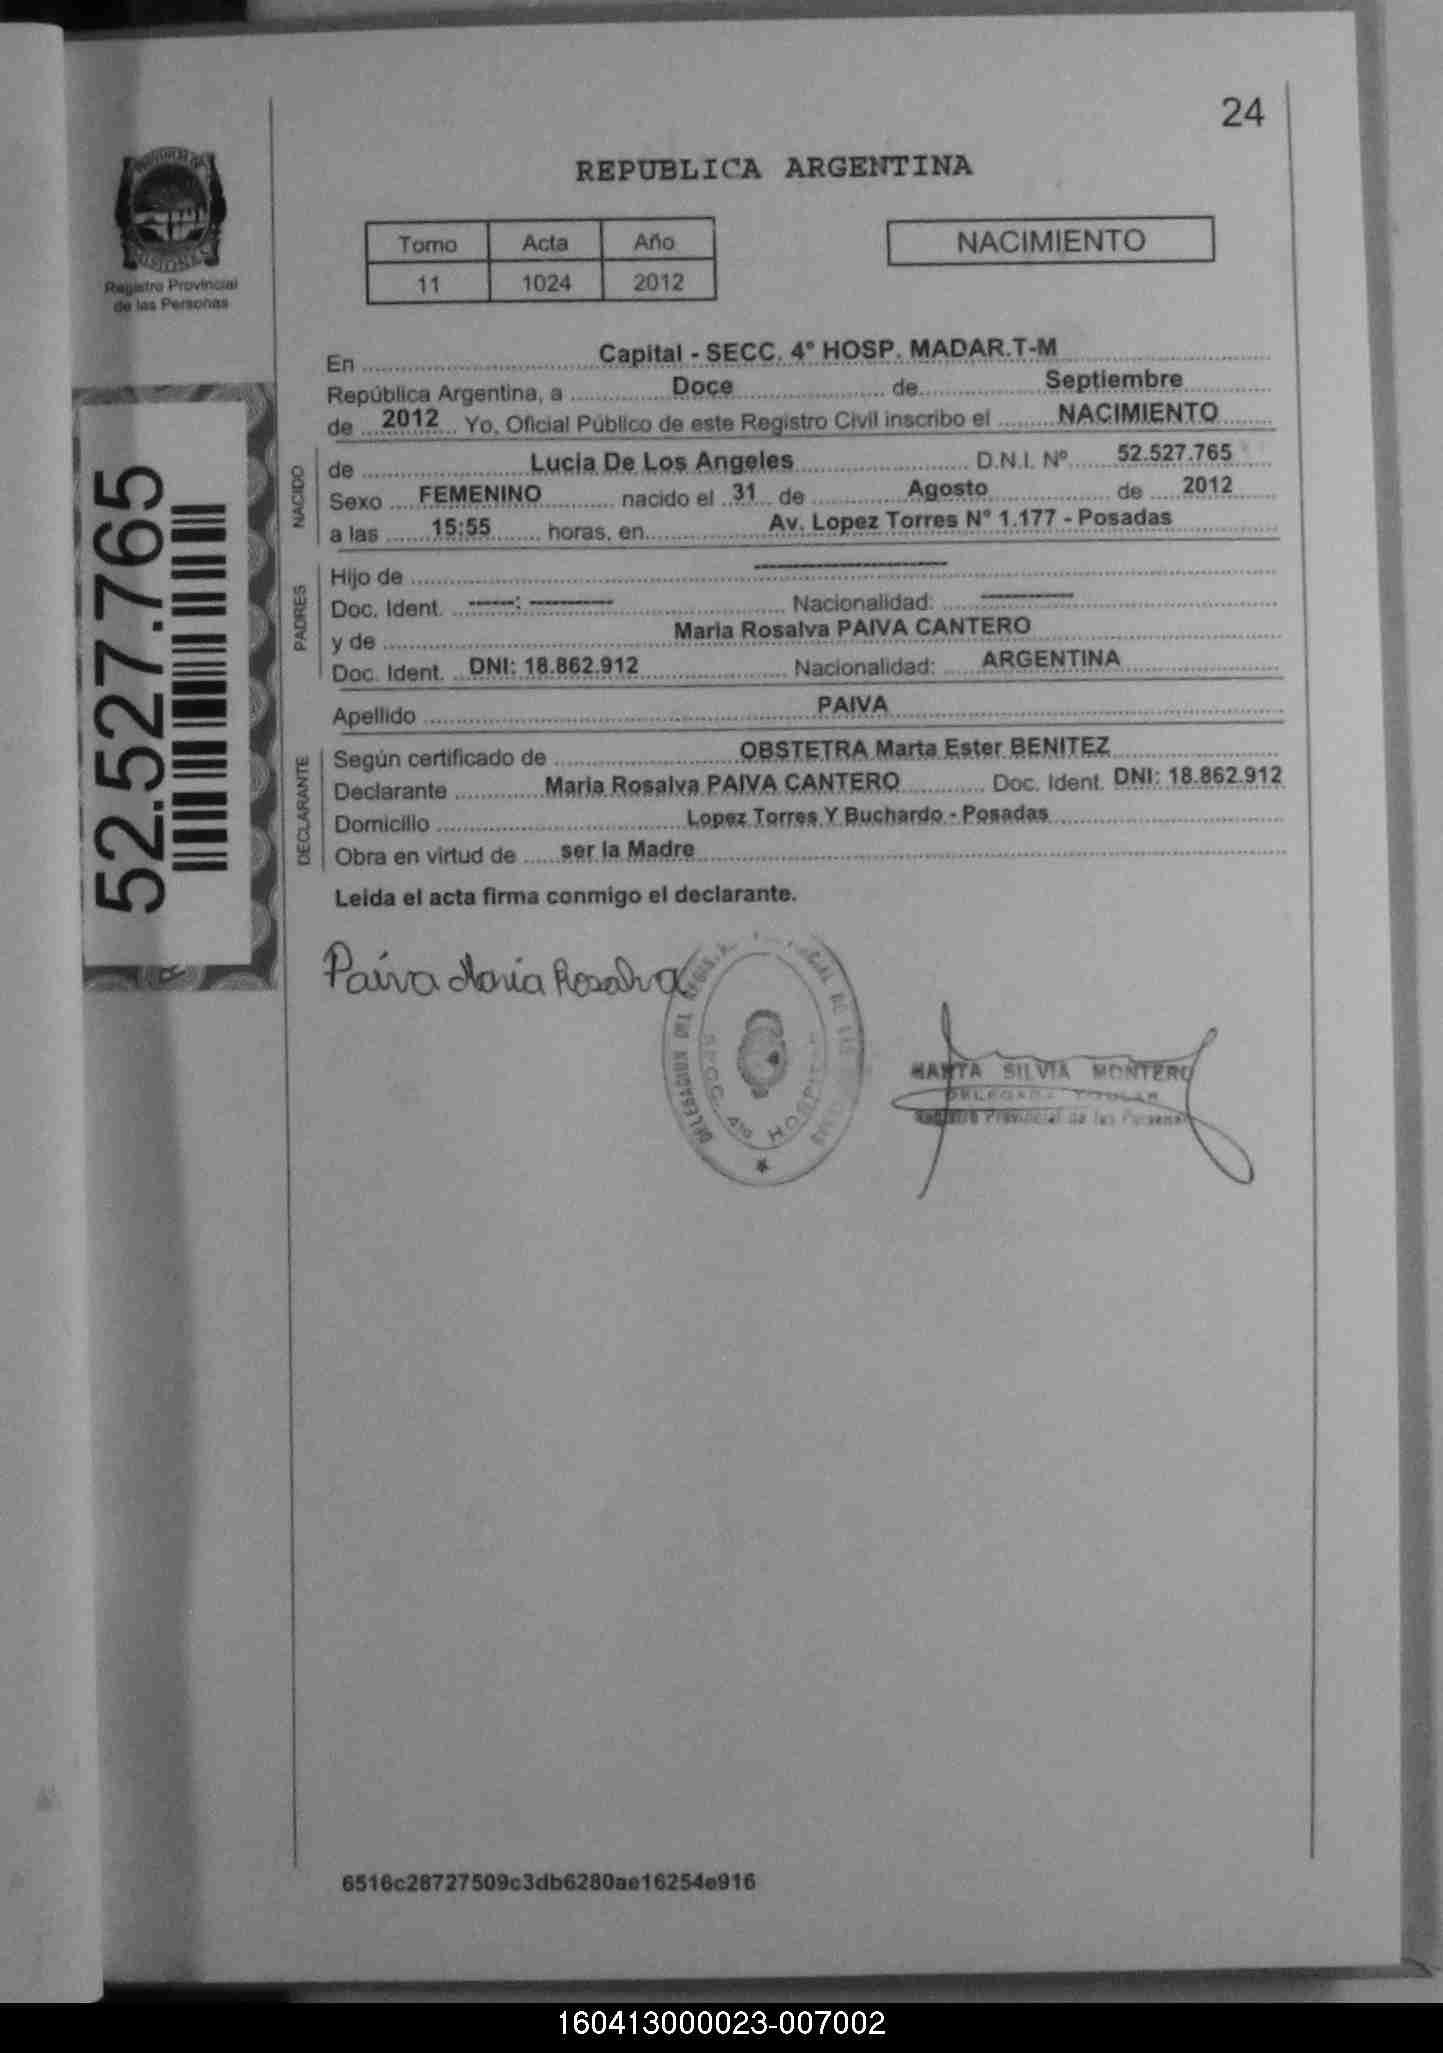 24
REPUBLICA ARGENTINA
Tomo Acta Año
11 1024 2012
NACIMIENTO
MISIONES
Registro Provincial
de las Personas
52.527.765
En Capital - SECC. 4° HOSP. MADAR.T-M
República Argentina, a Doce de Septiembre
de 2012 Yo, Oficial Público de este Registro Civil inscribo el NACIMIENTO
NACIDO
de Lucia De Los Angeles D.N.I. Nº 52.527.765
Sexo FEMENINO nacido el 31 de Agosto de 2012
a las 15:55 horas, en Av. Lopez Torres N° 1.177 - Posadas
PADRES
Hijo de --------------------
Doc. Ident. ------: ---------- Nacionalidad: ----------
y de Maria Rosalva PAIVA CANTERO
Doc. Ident. DNI: 18.862.912 Nacionalidad: ARGENTINA
Apellido PAIVA
DECLARANTE
Según certificado de OBSTETRA Marta Ester BENITEZ
Declarante Maria Rosalva PAIVA CANTERO Doc. Ident. DNI: 18.862.912
Domicilio Lopez Torres Y Buchardo - Posadas
Obra en virtud de ser la Madre
Leida el acta firma conmigo el declarante.
Paiva Maria Rosalva
DELEGACION
SECC. 4ta HOSPITAL
MARTA SILVIA MONTERO
DELEGADA TITULAR
Registro Provincial de las Personas
6516c28727509c3db6280ae16254e916
160413000023-007002